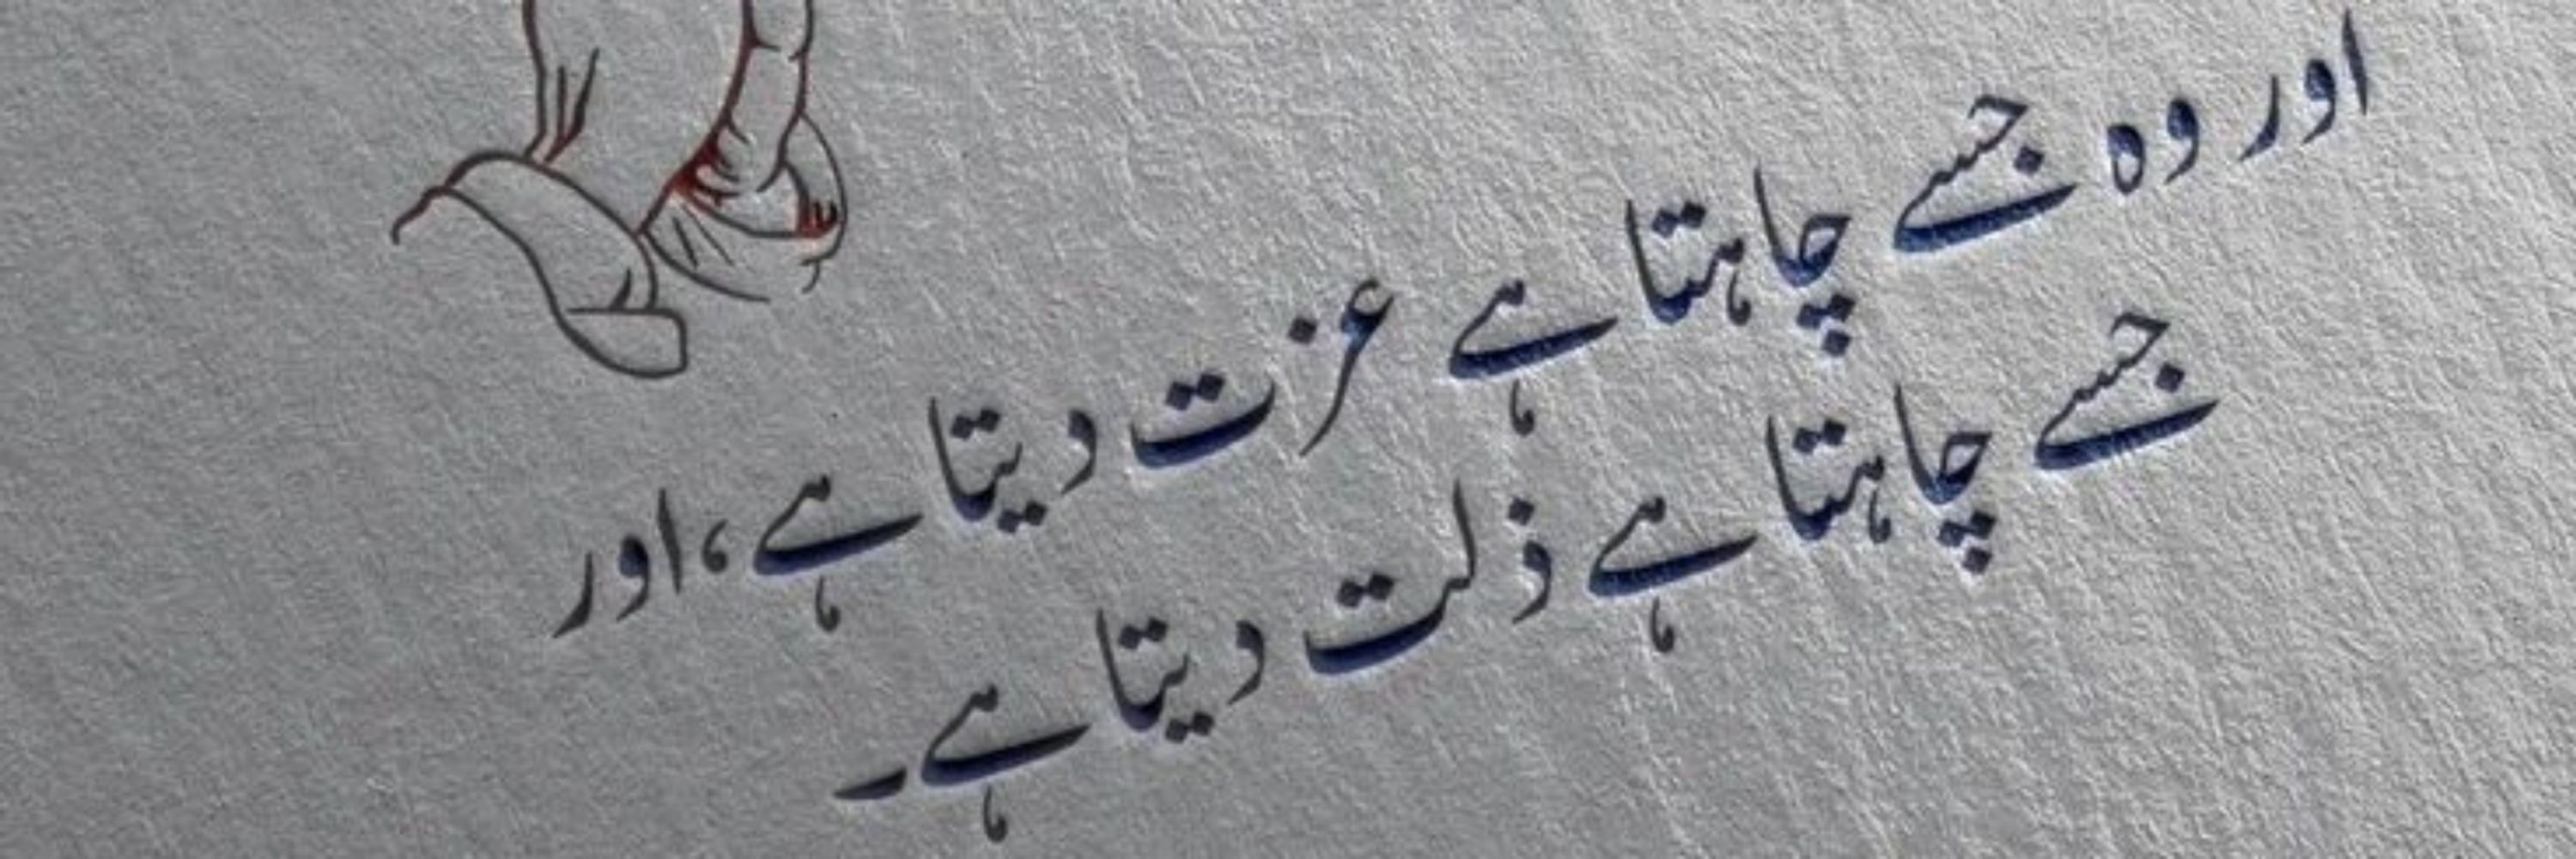 اور وہ جسے چاہتا ہے عزت دیتا ہے، اور
جسے چاہتا ہے ذلت دیتا ہے۔